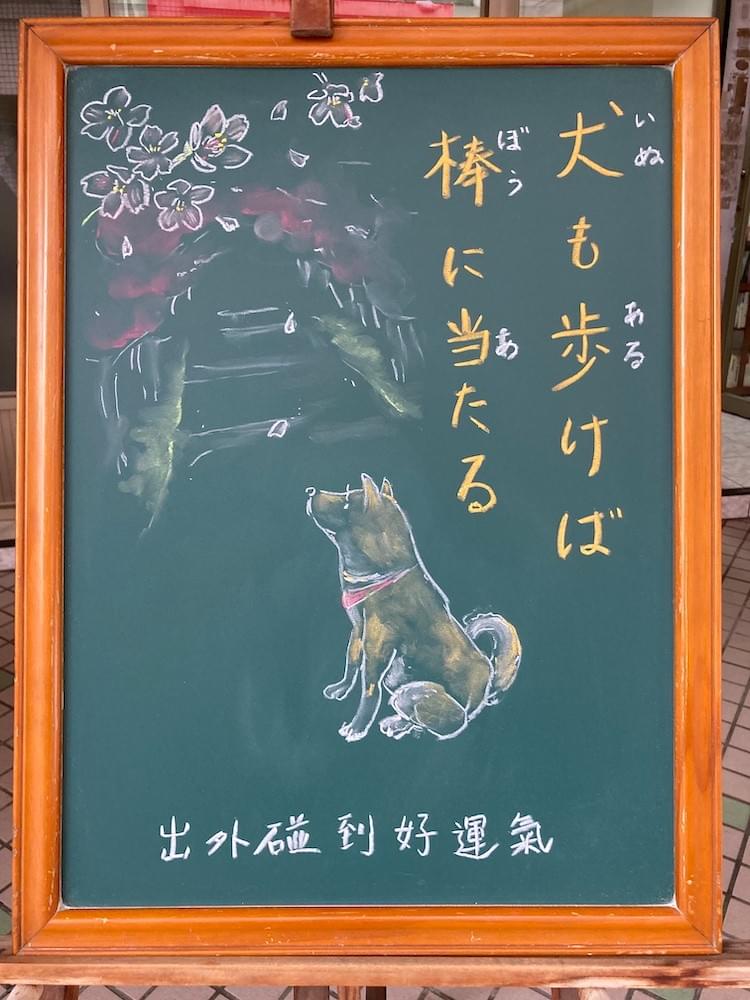 犬も歩けば
いぬ
ある
棒に当たる
ぼう
あ
出外碰到好運氣